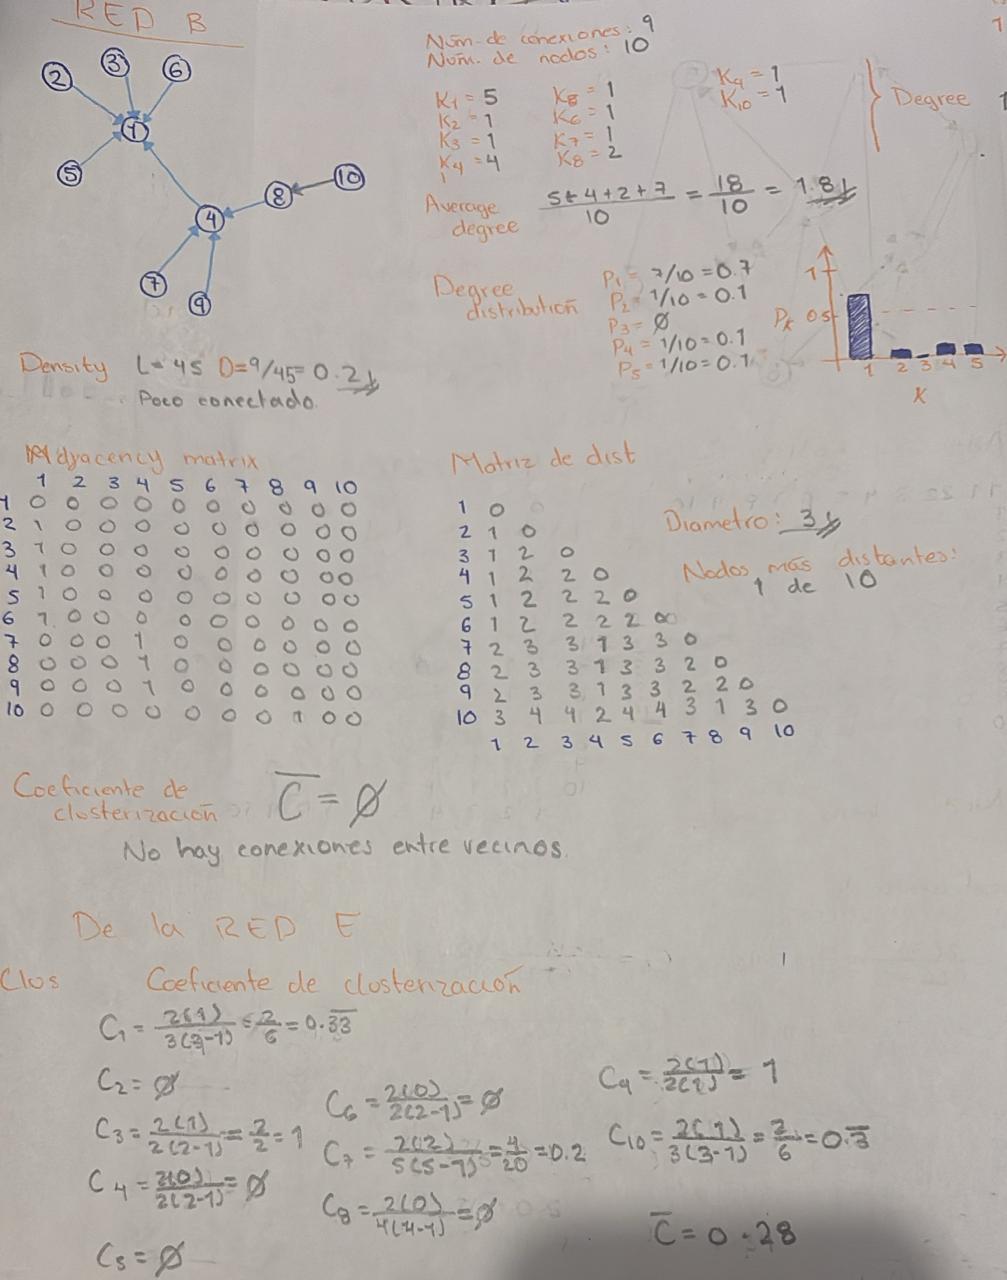 RED B
2 3 6
1
5
4 8 10
7
9
Núm. de conexiones: 9
Núm. de nodos: 10
K1 = 5 K8 = 1 K9 = 1
K2 = 1 K6 = 1 K10 = 1
K3 = 1 K7 = 1
K4 = 4 K8 = 2
Degree
Average degree
5+4+2+7 / 10 = 18/10 = 1.8
Degree distribution
P1 = 7/10 = 0.7
P2 = 1/10 = 0.1
P3 = Ø
P4 = 1/10 = 0.1
P5 = 1/10 = 0.1
1
PK 0.5
1 2 3 4 5
K
Density L= 45 D=9/45= 0.2
Poco conectado.
Adyacency matrix
1 2 3 4 5 6 7 8 9 10
1 0 0 0 0 0 0 0 0 0 0
2 1 0 0 0 0 0 0 0 0 0
3 1 0 0 0 0 0 0 0 0 0
4 1 0 0 0 0 0 0 0 0 0
5 1 0 0 0 0 0 0 0 0 0
6 1 0 0 0 0 0 0 0 0 0
7 0 0 0 1 0 0 0 0 0 0
8 0 0 0 1 0 0 0 0 0 0
9 0 0 0 1 0 0 0 0 0 0
10 0 0 0 0 0 0 0 1 0 0
Matriz de dist
1 0
2 1 0
3 1 2 0
4 1 2 2 0
5 1 2 2 2 0
6 1 2 2 2 2 0
7 2 3 3 1 3 3 0
8 2 3 3 1 3 3 2 0
9 2 3 3 1 3 3 2 2 0
10 3 4 4 2 4 4 3 1 3 0
1 2 3 4 5 6 7 8 9 10
Diametro: 3
Nodos más distantes:
1 de 10
Coeficiente de
closterización
C̅ = Ø
No hay conexiones entre vecinos.
De la RED E
Clos Coeficiente de closterización
C1 = 2(1) / 3(3-1) = 2/6 = 0.33
C2 = Ø
C3 = 2(1) / 2(2-1) = 2/2 = 1
C4 = 2(0) / 2(2-1) = Ø
C5 = Ø
C6 = 2(0) / 2(2-1) = Ø
C7 = 2(2) / 5(5-1) = 4/20 = 0.2
C8 = 2(0) / 4(4-1) = Ø
C9 = 2(1) / 2(1) = 1
C10 = 2(1) / 3(3-1) = 2/6 = 0.3̅
C̅ = 0.28